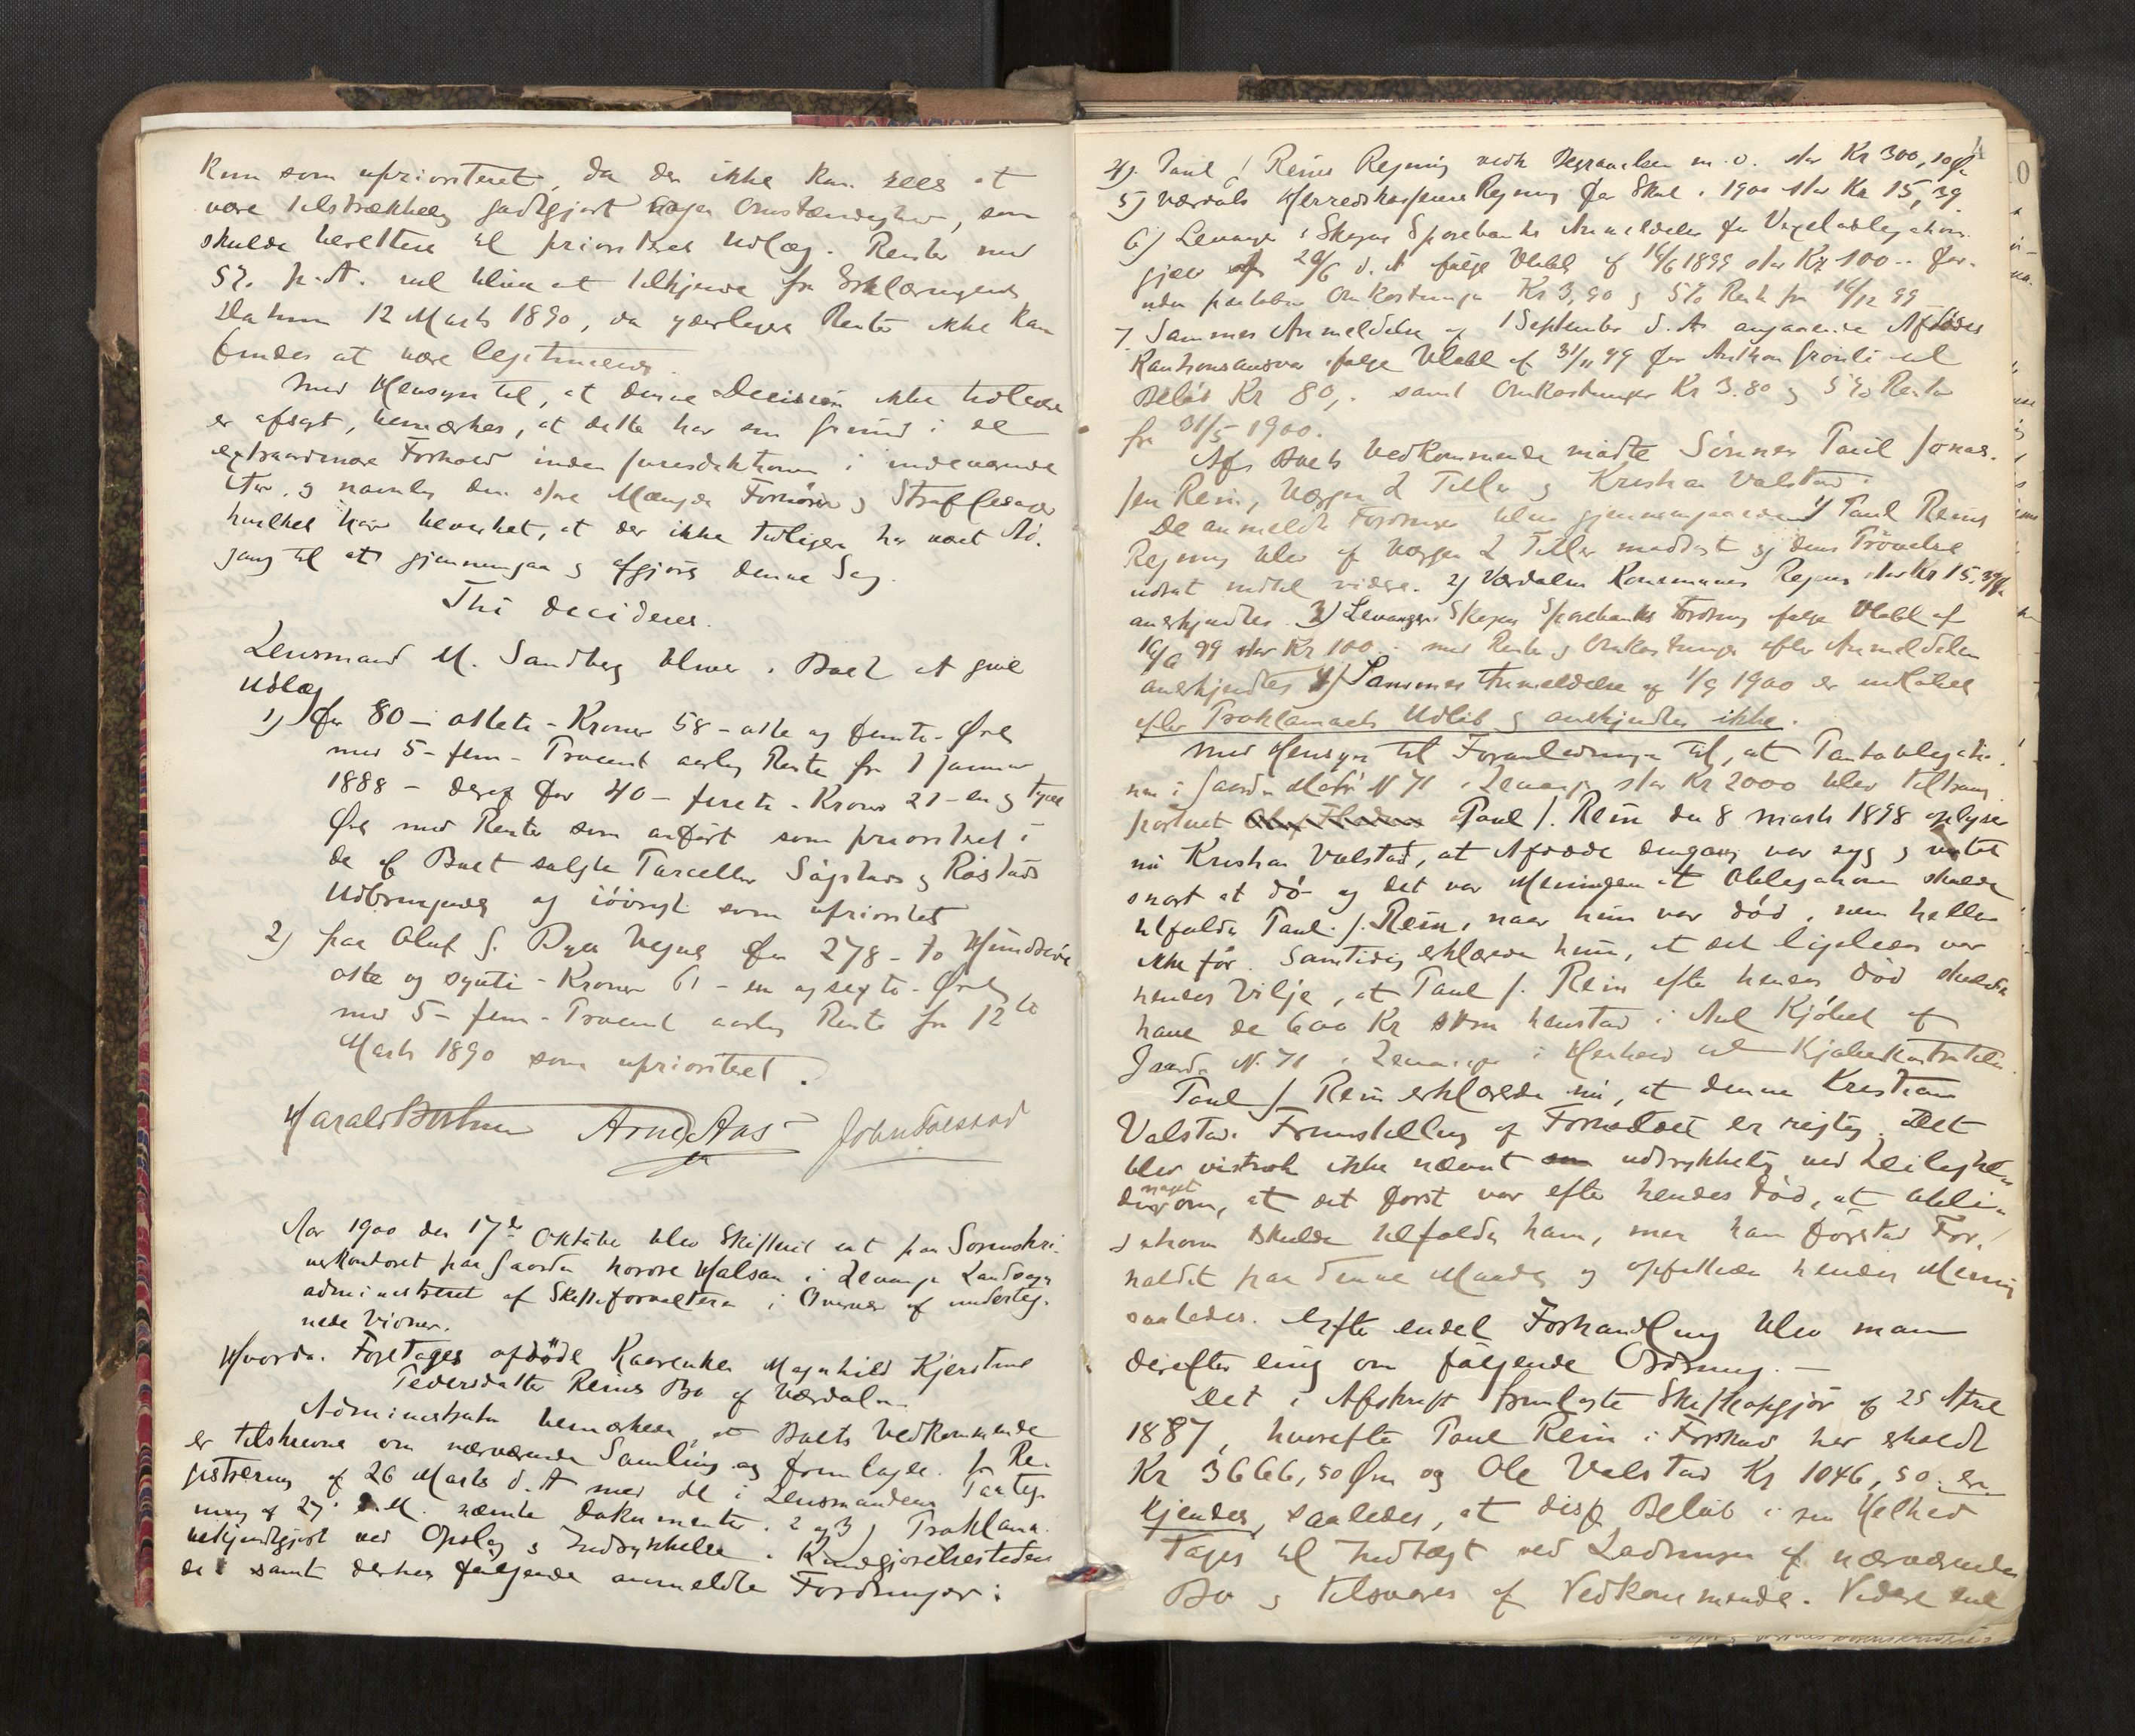 kun som uprioriteret, da der ikke kan sees at
være tilstrækkelig godtgjort nogen Omstændighed, som
skulde berettige til prioriteret Udlæg. Renter med
5% p.A. vil blive at tilkjende fra Erklæringens
Datum 12 Marts 1890, da yderligere Renter ikke kan
findes at være legitimeret.
Med Hensyn til, at denne Decision ikke tidligere
er afsagt, bemærkes, at dette har sin Grund i de
extraordinære Forhold inden Jurisdiktionen i indeværende
Aar, og navnlig den store Mængde Forhører og Straffesager
hvilket har bevirket, at der ikke tidligere har været Ad-
gang til at gjennemgaa og afgjøre denne Sag.
Thi decideres.
Lensmand M. Sandberg bliver i Boet at give
Udlæg
1) for 80 - otteti - Kroner 58 - otte og femti - Øre
med 5 - fem - Procent aarlig Rente fra 1 Januar
1888 - deraf for 40 - fireti - Kroner 21 - en og tyve
Øre med Renter som anført som prioriteret i
de af Boet solgte Parceller Sagstads og Røstads
Udbringende og iøvrigt som uprioritet
2) paa Oluf J. Ryes Vegne for 278 - to Hundrede
otte og sytti - Kroner 61 - en og sexti - Øre
med 5 - fem - Procent aarlig Rente fra 12te
Marts 1890 som uprioriteret.
Harald Bothner Arne Aas John Tolstad
Aar 1900 den 17de Oktober blev Skifteret sat paa Sorenskri-
verkontoret paa Gaarden nordre Halsan i Levanger Landsogn
administreret af Skifteforvalteren i Overvær af underteg-
nede Vidner.
Hvorda. Foretages afdøde Kaarenke Magnhild Kjerstine
Pedersdatter Reins Bo af Værdalen.
Administrator bemærkede, at Boets Vedkommende
er tilskrevne om nærværende Samling og fremlagde 1 Re-
gistrering af 26 Marts d.A med de i Lensmandens Paateg-
ning af 27 s.M. nævnte Dokumenter. 2 og 3) Proklama
bekjendtgjort ved Opslag og Indrykkelse i Kundgjørelsestiden
de samt derhos følgende anmeldte Fordringer:
4). Paul J Reins Regning vedk Begravelsen m.v. stor Kr 300,10 Ø
5) Værdals Herredskasseres Regning for Skat i 1900 stor Kr 15,39.
6) Levanger & Skogns Sparebanks Anmeldelse for Vexelobligations-
gjæld af 20/6 d.A ifølge Vexel af 16/6 1899 stor Kr 100.- for-
uden paaløbne Omkostninger Kr 3,90 og 5% Rente fra 16/12 99
7. Sammes Anmeldelse af 1 September d.A. angaaende Afdødes
Kautionsansvar ifølge Vexel af 31/11 99 for Anthon Grønli til
Beløb Kr 80,- samt Omkostninger Kr 3.80 og 5% Renter
fra 31/5 1900.
Af Boets Vedkommende mødte Sønnen Paul Jonas-
sen Rein, Værgen L Tiller og Kristian Valstad.
De anmeldte Fordringer blev gjennemgaaede. 1) Paul Reins
Regning blev af Værgen L Tiller modsagt og dens Prøvelse
udsat indtil videre. 2) Værdalens Kommunes Regning stor Kr 15.39 Ø
anerkjendtes. 3) Levanger & Skogns Sparebanks Fordring ifølge Vexel af
16/6 99 stor Kr 100.- med Rente og Omkostninger efter Anmeldelsen
anerkjendtes 4) Sammes Anmeldelse af 1/9 1900 er indkommet
efter Proklamaets Udløb og anerkjendtes ikke.
Med Hensyn til Foranledningen til, at Panteobligatio-
nen i Gaarden Matr N 71 i Levanger stor Kr 2000 blev tiltrans-
porteret Paul J. Rein den 8 Marts 1898 oplyste
nu Kristian Valstad, at Afdøde dengang var syg og ventet
snart at dø og det var Meningen at Obligationen skulde
tilfalde Paul J. Rein, naar hun var død, men heller
ikke før. Samtidig erklærede hun, at det ligeledes var
hendes Vilje, at Paul J. Rein efter hendes Død skulde
have de 600 Kr som henstod i Aul Kjøbet af
Gaarden N. 71 i Levanger i Henhold til Kjøbekontrakten.
Paul J Rein erklærede nu, at denne Kristian
Valstads Fremstilling af Forholdet er rigtig. Det
blev vistnok ikke nævnt udtrykkelig ved Leilighe-
den noget om, at det først var efter hendes Død, at Obli-
gationen skulde tilfalde ham, men han forstod For-
holdet paa denne Maade og opfattede hendes Mening
saaledes. Efter endel Forhandling blev man
derefter enig om følgende Ordning. -
Det i Afskrift fremlagte Skifteopgjør af 25 April
1887, hvorefter Paul Rein i Forskud har erholdt
Kr 3666,50 Øre og Ole Valstad Kr 1046,50. er-
kjendes, saaledes, at disse Beløb i sin Helhed
tages til Indtægt ved Ladningen af nærværende
Bo og tilsvares af Vedkommende. Videre skal